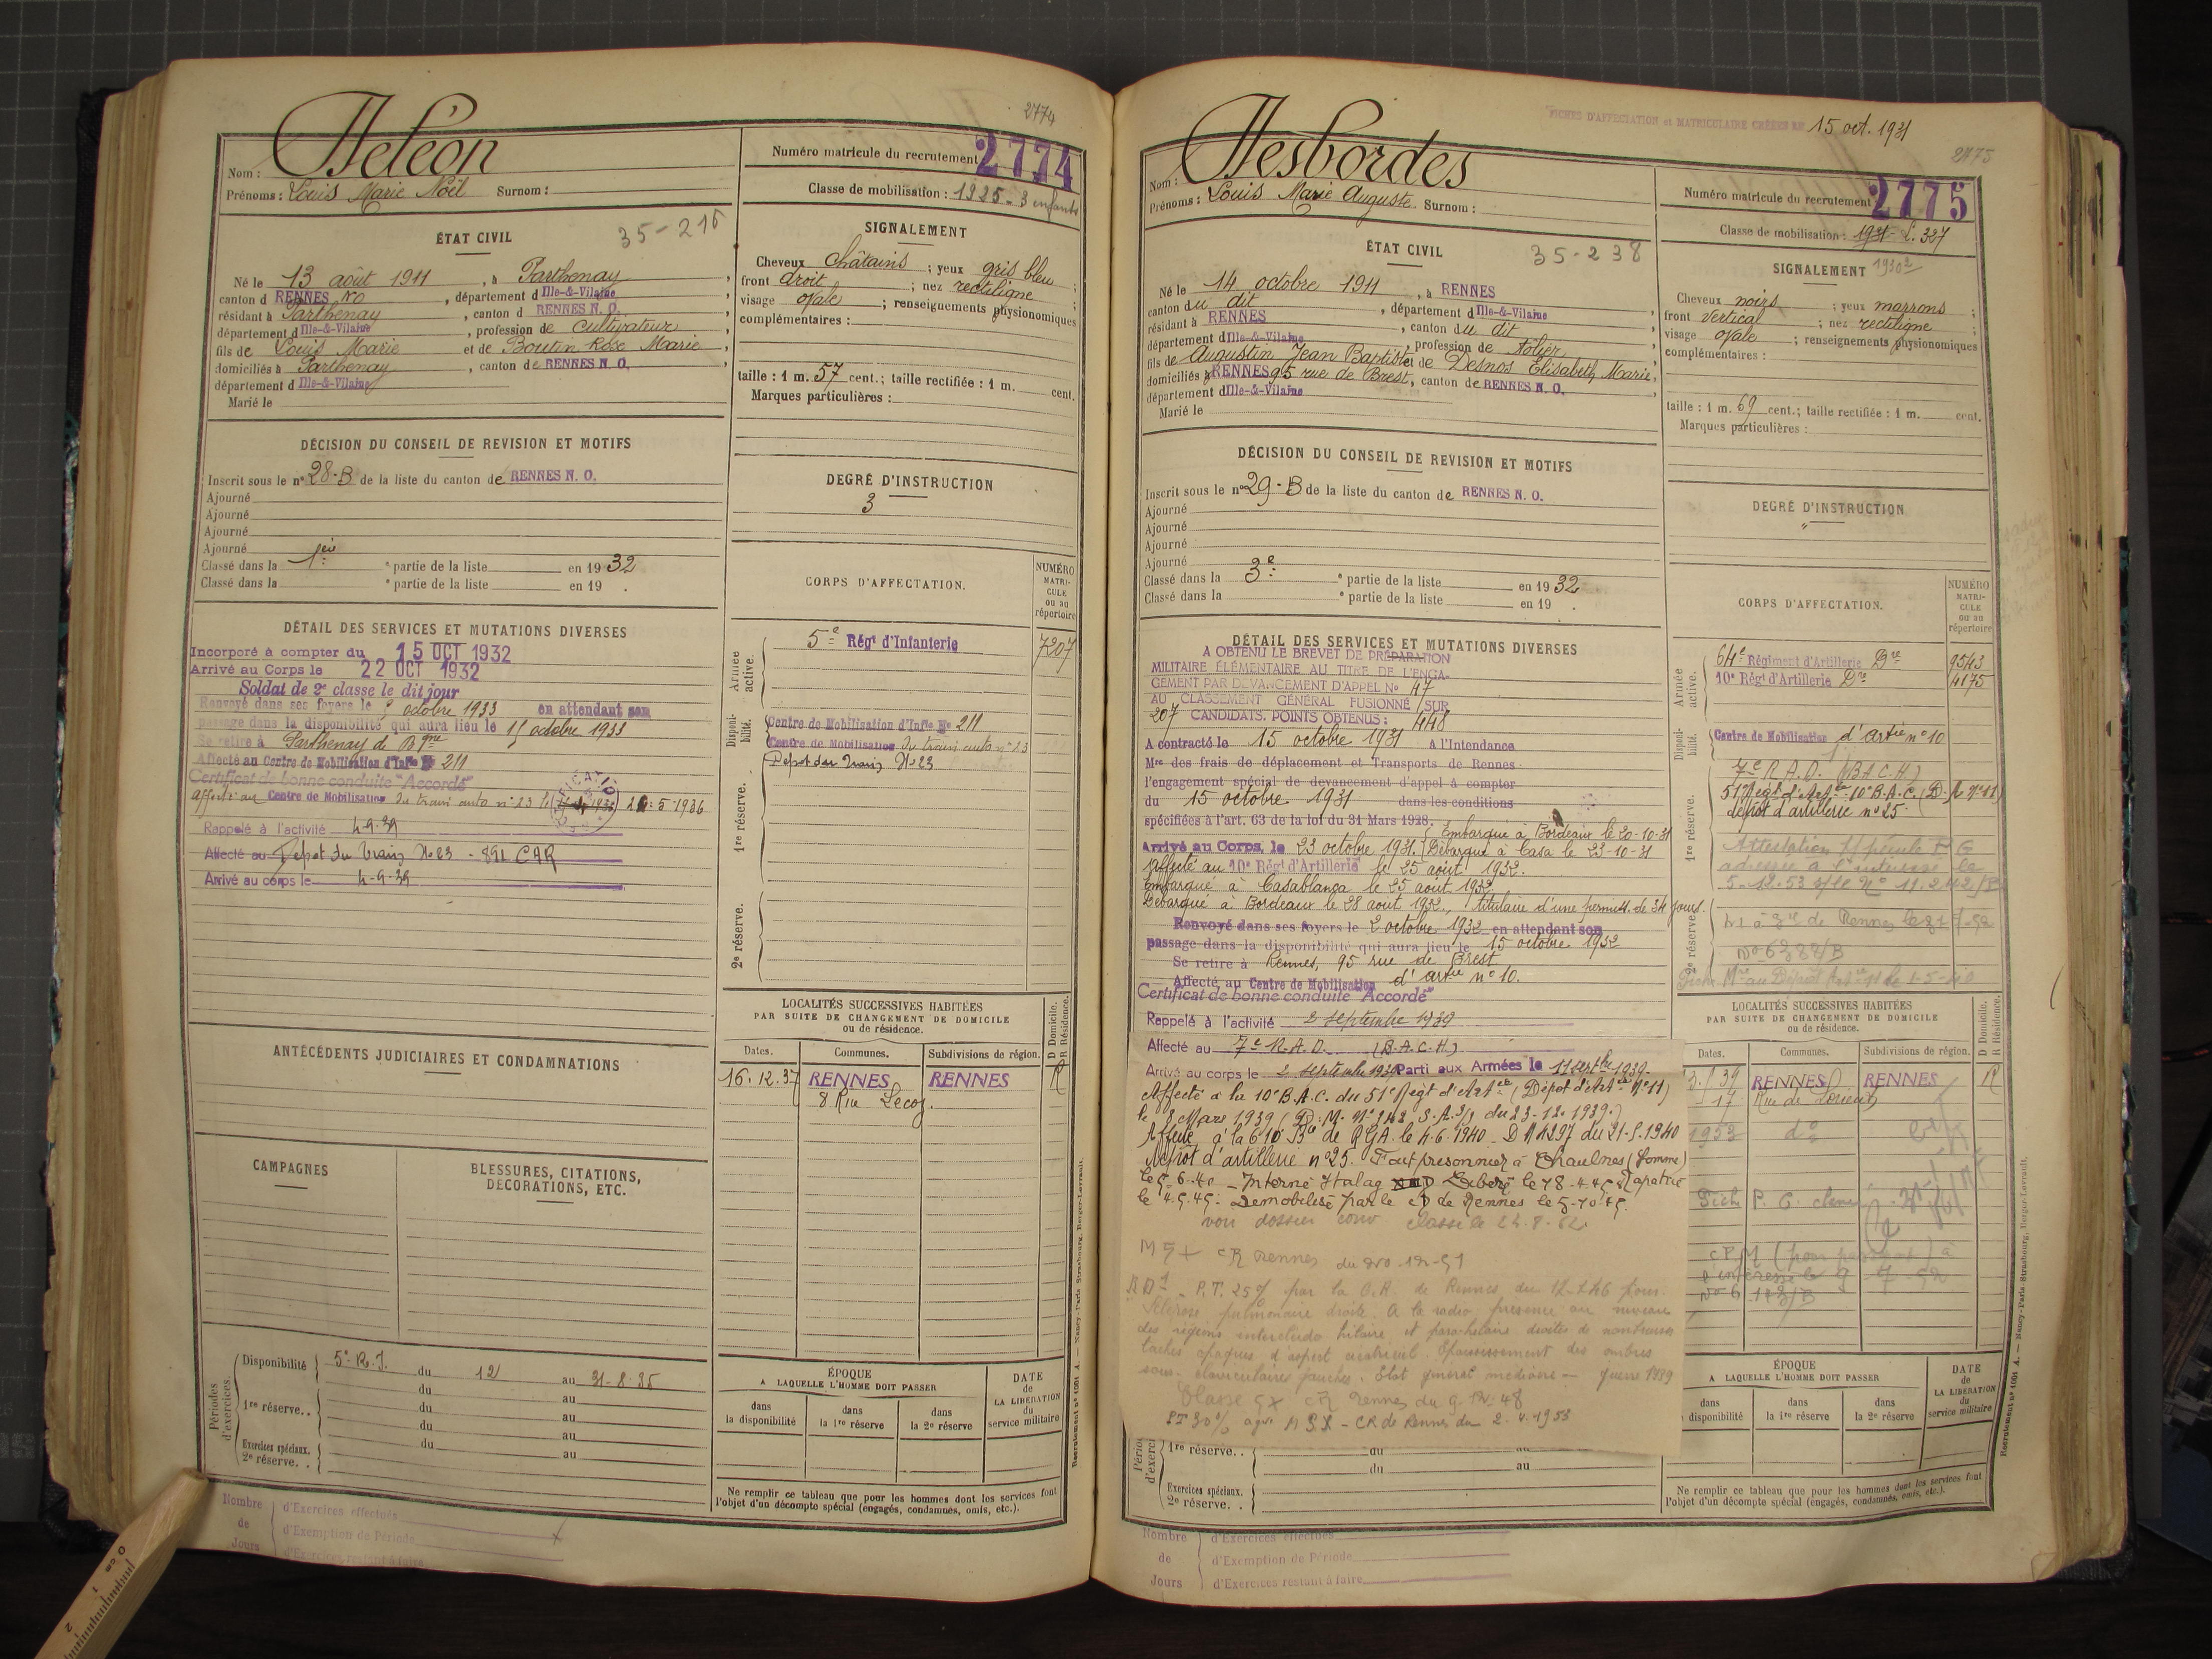 2774
Deléon
Nom :
Prénoms : Louis Marie Noël Surnom :
Numéro matricule du recrutement 2774
Classe de mobilisation : 1925 - 3 enfants
ÉTAT CIVIL
35-216
Né le 13 août 1911, à Parthenay,
canton d RENNES NO, département d Ille-&-Vilaine,
résidant à Parthenay, canton d RENNES N. O.,
département d Ille-&-Vilaine, profession de cultivateur
fils de Louis Marie et de Boutin Rose Marie,
domiciliés à Parthenay, canton de RENNES N. O.,
département d Ille-&-Vilaine
Marié le
SIGNALEMENT
Cheveux châtains ; yeux gris bleu ;
front droit ; nez rectiligne ;
visage ovale ; renseignements physionomiques
complémentaires :
taille : 1 m. 57 cent.; taille rectifiée : 1 m. cent.
Marques particulières :
DÉCISION DU CONSEIL DE REVISION ET MOTIFS
Inscrit sous le n° 28-B de la liste du canton de RENNES N. O.
Ajourné
Ajourné
Ajourné
Ajourné
Classé dans la 1ère partie de la liste en 1932
Classé dans la e partie de la liste en 19 .
DEGRÉ D'INSTRUCTION
3
DÉTAIL DES SERVICES ET MUTATIONS DIVERSES
Incorporé à compter du 15 OCT 1932
Arrivé au Corps le 22 OCT 1932
Soldat de 2e classe le dit jour
Renvoyé dans ses foyers le octobre 1933 en attendant son
passage dans la disponibilité qui aura lieu le 15 octobre 1933
Se retire à Parthenay de Bgne
Affecté au Centre de Mobilisation d'Infie N° 211
Certificat de bonne conduite "Accordé"
affecté au Centre de Mobilisation du train auto n° 23 5-1936
Rappelé à l'activité 4-9-39
Affecté au Dépôt du Train N° 23 - 891 CAR
Arrivé au corps le 4-9-39
CORPS D'AFFECTATION.
NUMÉRO MATRICULE ou au répertoire
Armée active.
5e Régt d'Infanterie 7207
Disponibilité.
Centre de Mobilisation d'Infie N° 211
Centre de Mobilisation du train auto n° 23
Dépôt du Train N° 23
1re réserve.
2e réserve.
ANTÉCÉDENTS JUDICIAIRES ET CONDAMNATIONS
LOCALITÉS SUCCESSIVES HABITÉES
PAR SUITE DE CHANGEMENT DE DOMICILE
ou de résidence.
D Domicile. R Résidence.
Dates. Communes. Subdivisions de région.
16.12.37 RENNES RENNES R
8 Rue Lecoz.
CAMPAGNES
BLESSURES, CITATIONS,
DÉCORATIONS, ETC.
Périodes d'exercices.
Disponibilité 5e R.I. du 12 au 31-8-35
du au
1re réserve.. du au
du au
Exercices spéciaux. du au
2e réserve. .
ÉPOQUE
A LAQUELLE L'HOMME DOIT PASSER
DATE de LA LIBÉRATION du service militaire
dans la disponibilité
dans la 1re réserve
dans la 2e réserve
Ne remplir ce tableau que pour les hommes dont les services font
l'objet d'un décompte spécial (engagés, condamnés, omis, etc.).
Nombre de Jours
d'Exercices effectués
d'Exemption de Période
d'Exercices restant à faire
FICHES D'AFFECTATION et MATRICULAIRE CRÉÉES LE 15 oct. 1931
2775
Desbordes
Nom :
Prénoms : Louis Marie Auguste. Surnom :
Numéro matricule du recrutement 2775
Classe de mobilisation : 1931 - L. 337
ÉTAT CIVIL
35-238
Né le 14 octobre 1911, à RENNES
canton du dit, département d Ille-&-Vilaine,
résidant à RENNES, canton du dit,
département d Ille-&-Vilaine, profession de tôlier,
fils de Augustin Jean Baptiste et de Desnos Elisabeth Marie,
domiciliés à RENNES 95 rue de Brest, canton de RENNES N. O.,
département d Ille-&-Vilaine
Marié le
SIGNALEMENT
Cheveux noirs ; yeux marrons ;
front vertical ; nez rectiligne ;
visage ovale ; renseignements physionomiques
complémentaires :
taille : 1 m. 69 cent.; taille rectifiée : 1 m. cent.
Marques particulières :
DÉCISION DU CONSEIL DE REVISION ET MOTIFS
Inscrit sous le n° 29-B de la liste du canton de RENNES N. O.
Ajourné
Ajourné
Ajourné
Ajourné
Classé dans la 3e partie de la liste en 1932
Classé dans la e partie de la liste en 19 .
DEGRÉ D'INSTRUCTION
"
DÉTAIL DES SERVICES ET MUTATIONS DIVERSES
A OBTENU LE BREVET DE PRÉPARATION
MILITAIRE ÉLÉMENTAIRE AU TITRE DE L'ENGA-
GEMENT PAR DEVANCEMENT D'APPEL N° 47
AU CLASSEMENT GÉNÉRAL FUSIONNÉ SUR
207 CANDIDATS. POINTS OBTENUS : 448
A contracté le 15 octobre 1931 à l'Intendance
Mre des frais de déplacement et Transports de Rennes
l'engagement spécial de devancement d'appel à compter
du 15 octobre 1931 dans les conditions
spécifiées à l'art. 63 de la loi du 31 Mars 1928. Embarqué à Bordeaux le 20-10-31
Arrivé au Corps, le 23 octobre 1931. Débarqué à Casa le 23-10-31
Affecté au 10e Régt d'Artillerie le 25 août 1932.
Embarqué à Casablanca le 25 août 1932.
Débarqué à Bordeaux le 28 août 1932, titulaire d'une permis. de 34 jours.
Renvoyé dans ses foyers le 2 octobre 1932 en attendant son
passage dans la disponibilité qui aura lieu le 15 octobre 1932
Se retire à Rennes, 95 rue de Brest
Affecté au Centre de Mobilisation d'artie n° 10.
Certificat de bonne conduite "Accordé"
Rappelé à l'activité 2 septembre 1939
Affecté au 7e R.A.D. (B.A.C.H)
Arrivé au corps le 2 septembre 1939 Parti aux Armées le 11 septbre 1939.
Affecté à la 10e B.A.C. du 51e Régt d'Artie (Dépôt d'Artie N° 11)
le 8 Mars 1939 (D.M. N° 242 S.A. du 23-12-1939.)
Affecté à la 610 Bie de RGA. le 4.6.1940 - DM 4297 du 21-5-1940
Dépôt d'artillerie n° 25. Fait prisonnier à Chaulnes (Somme)
le 5-6-40 - Interné Stalag Libéré le 18-4-45 Rapatrié
le 4.5.45. Démobilisé par le CD de Rennes le 5-7-45.
voir dossier conv classé le
CR Rennes du 20-12-51
P.T. 25% par la C.R. de Rennes du pour
Sclérose pulmonaire droite. A la radio, présence au niveau
des régions intercleido hilaire et parahilaire droites de nombreuses
taches opaques d'aspect cicatriciel. Epaississement des ombres
sous-claviculaires gauches. Etat général médiocre - guerre 1939
Classe 5X CR Rennes du 9-12-48
PT 30% - CR de Rennes du 2.4.1953
CORPS D'AFFECTATION.
NUMÉRO MATRICULE ou au répertoire
Armée active.
64e Régiment d'Artillerie Dre 9543
10e Régt d'Artillerie Dre 4175
Disponibilité.
Centre de Mobilisation d'Artie n° 10
1re réserve.
7e R.A.D. (B.A.C.H)
51e Régt d'Artie 10e B.A.C. (D. A. N° 11)
dépôt d'artillerie n° 25.
2e réserve.
LOCALITÉS SUCCESSIVES HABITÉES
PAR SUITE DE CHANGEMENT DE DOMICILE
ou de résidence.
D Domicile. R Résidence.
Dates. Communes. Subdivisions de région.
39 RENNES RENNES R
17 Rue de Lorient
1953 do
ÉPOQUE
A LAQUELLE L'HOMME DOIT PASSER
DATE de LA LIBÉRATION du service militaire
dans disponibilité
dans la 1re réserve
dans la 2e réserve
1re réserve. . du au
du au
Exercices spéciaux.
2e réserve. .
Ne remplir ce tableau que pour les hommes dont les services font
l'objet d'un décompte spécial (engagés, condamnés, omis, etc.).
Nombre de Jours
d'Exercices effectués
d'Exemption de Période
d'Exercices restant à faire